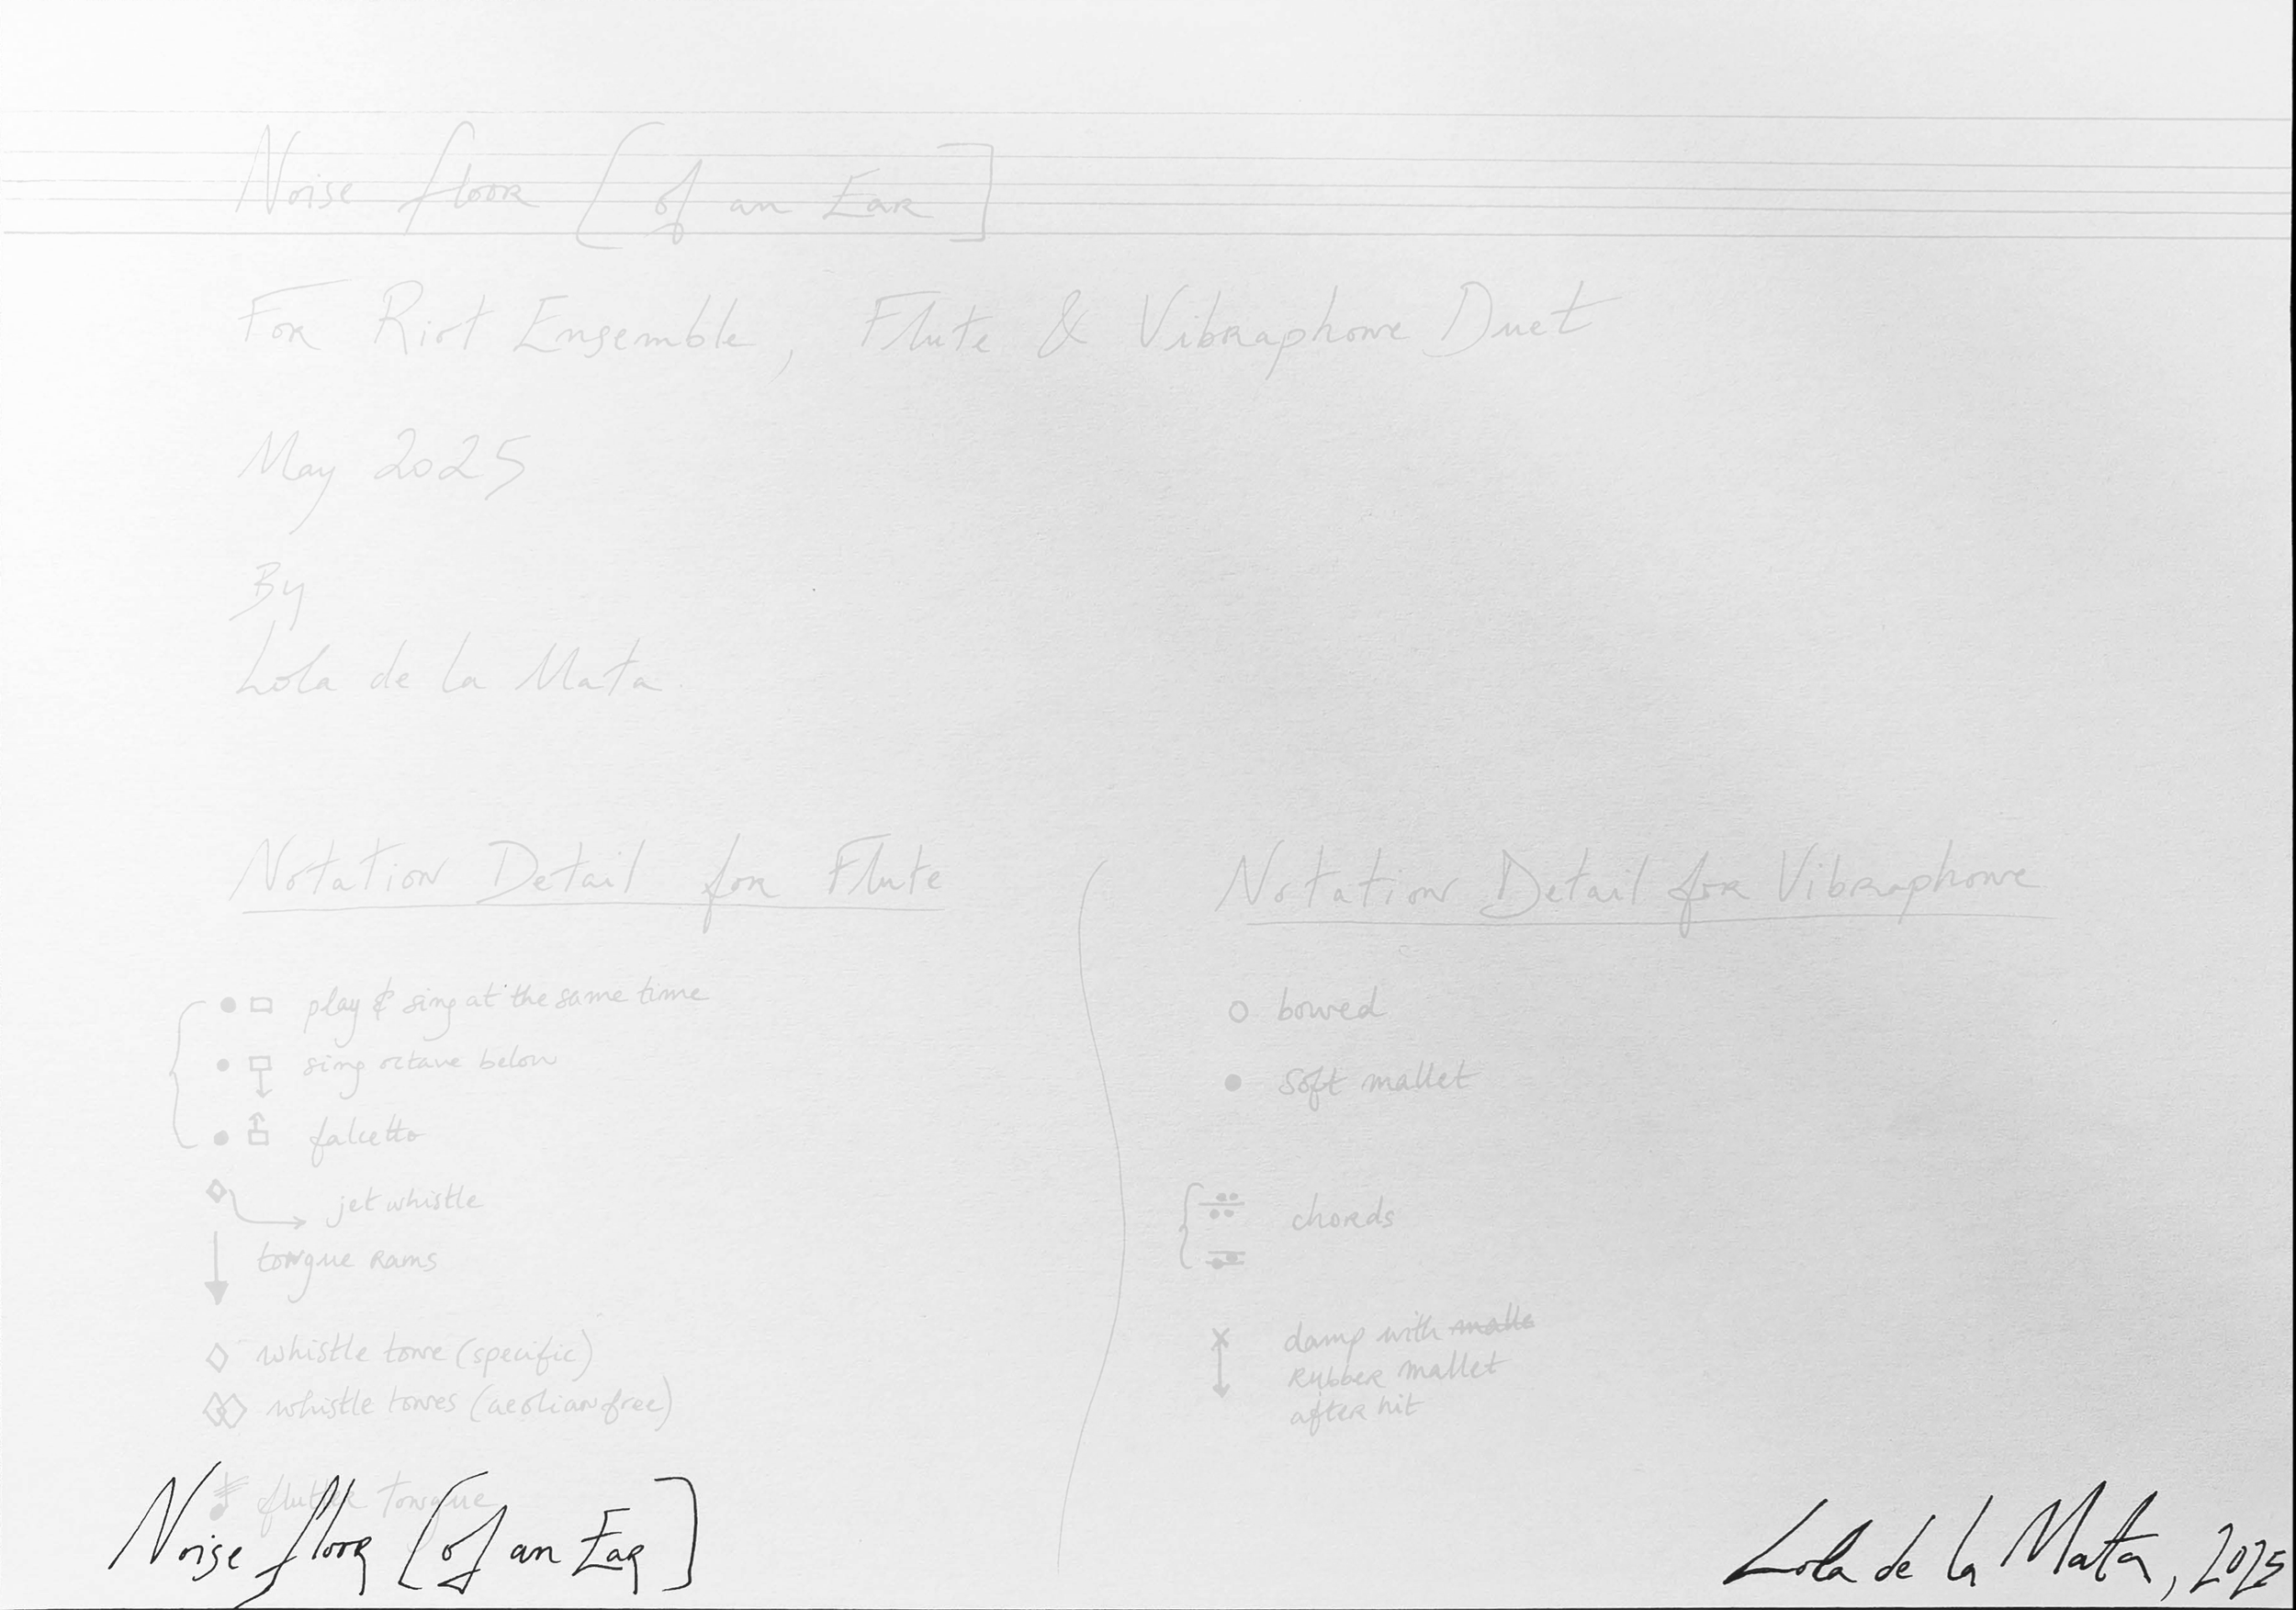 Noise floor [of an Ear]
For Riot Ensemble, Flute & Vibraphone Duet
May 2025
By
Lola de la Mata.
Notation Detail for Flute
play & sing at the same time
sing octave below
falcetto
jet whistle
tongue rams
whistle tone (specific)
whistle tones (aeolian free)
flutter tongue
Notation Detail for Vibraphone
bowed
soft mallet
chords
damp with malle
Rubber mallet
after hit
Noise floor [of an Ear]
Lola de la Mata, 2025